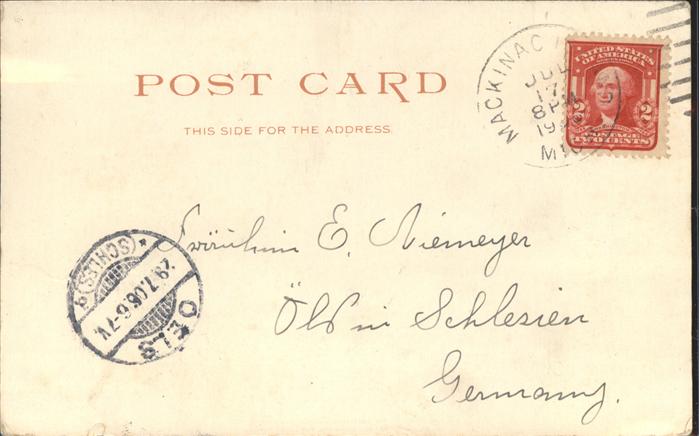 POST CARD
THIS SIDE FOR THE ADDRESS.
MACKINAC
JUL
17
8 PM
19
MICH
UNITED STATES
OF AMERICA
2 2
POSTAGE
TWO CENTS
Fräulein E. Niemeyer
Öls in Schlesien
Germany.
OELS
29.7.06.6-7V.
(SCHLES)